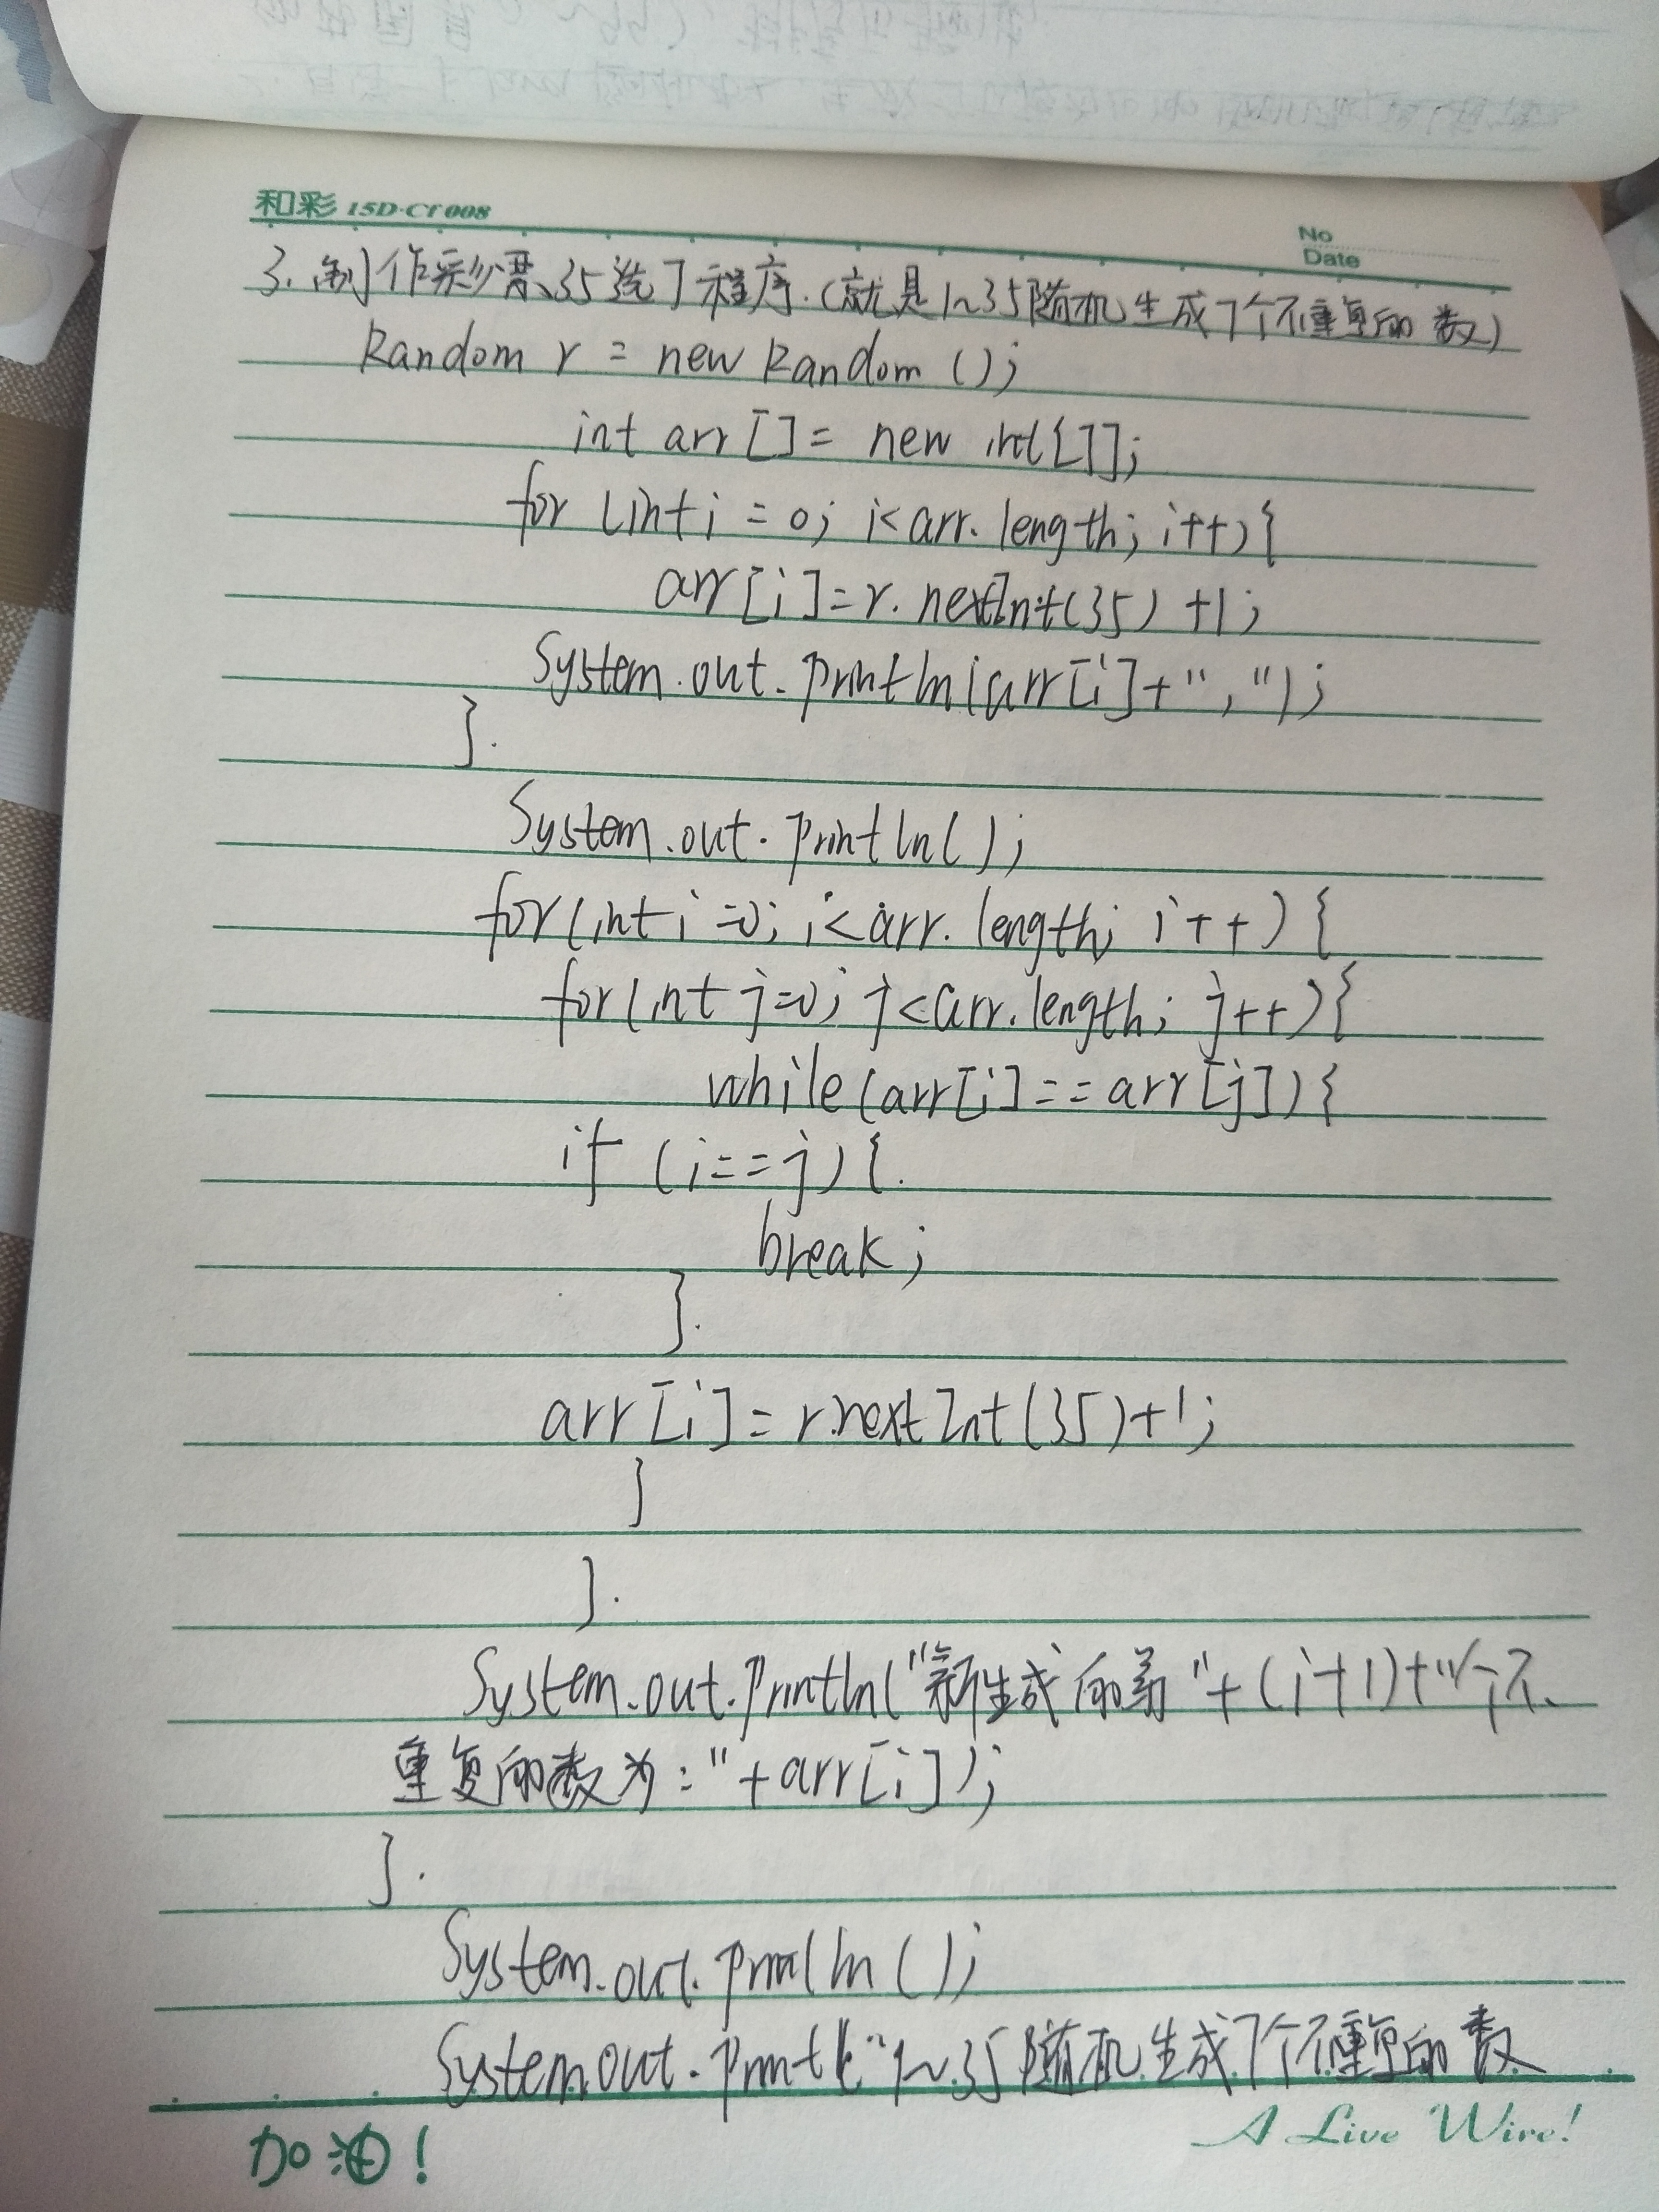 和彩 15D-CT008
No
Date
3. 制作彩票35选7程序.(就是1~35随机生成7个不重复的数)
Random r = new Random ();
int arr [] = new int[7];
for (int i = 0; i< arr. length; i++){
arr [i]=r. nextInt(35) +1;
System.out.println(arr[i]+",");
}.
System.out.println();
for(int i=0; i<arr. length; i++){
for(int j=0; j<arr.length; j++){
while(arr[i]==arr[j]){
if (i==j){.
break;
}.
arr[i]=r.nextInt(35)+1;
}
}.
System.out.println("新生成的第"+(i+1)+"个不
重复的数为:"+arr[i]);
}.
System.out.println();
System.out.print("1~35随机生成7个不重复的数
加油!
A Live Wire!